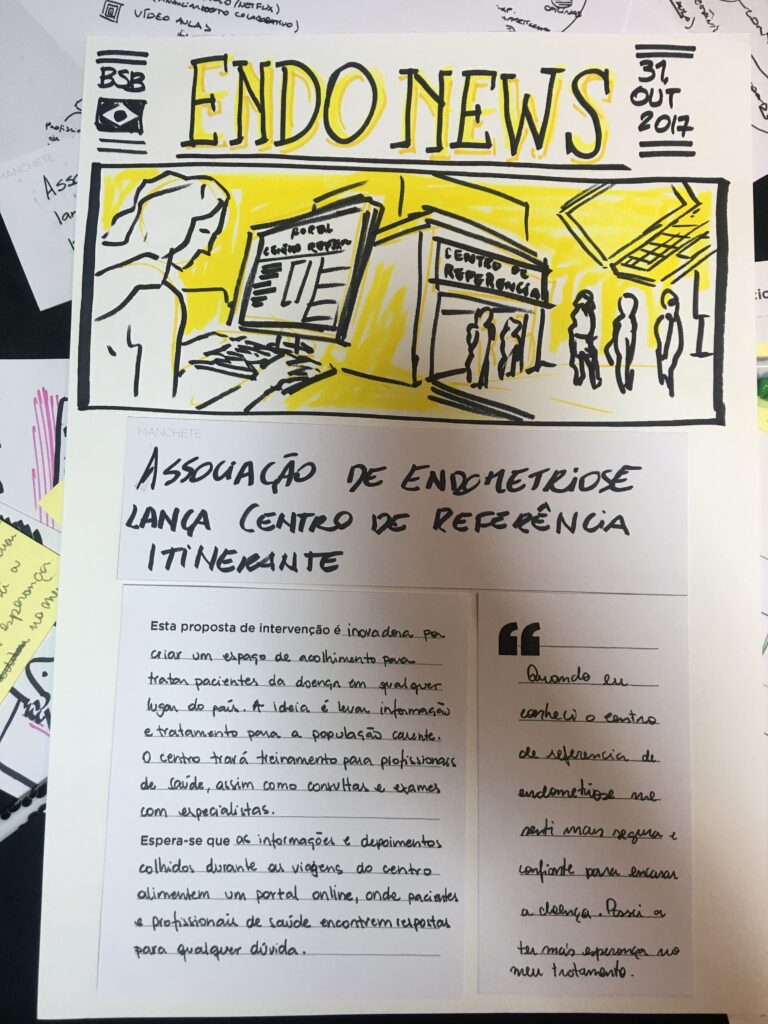 (FINANCIAMENTO COLABORATIVO)
VÍDEO AULAS
OFICINAS
BSB
ENDO NEWS
31
OUT
2017
MANCHETE
PORTAL
CENTRO
CENTRO DE
REFERÊNCIA
MANCHETE
ASSOCIAÇÃO DE ENDOMETRIOSE
LANÇA CENTRO DE REFERÊNCIA
ITINERANTE
Esta proposta de intervenção é inovadora por
criar um espaço de acolhimento para
tratar pacientes da doença em qualquer
lugar do país. A ideia é levar informação
e tratamento para a população carente.
O centro trará treinamento para profissionais
de saúde, assim como consultas e exames
com especialistas.
Espera-se que as informações e depoimentos
colhidos durante as viagens do centro
alimentem um portal online, onde pacientes
e profissionais de saúde encontrem respostas
para qualquer dúvida.
“
Quando eu
conheci o centro
de referencia de
endometriose me
senti mais segura e
confiante para encarar
a doença. Passei a
ter mais esperança no
meu tratamento.
esperança